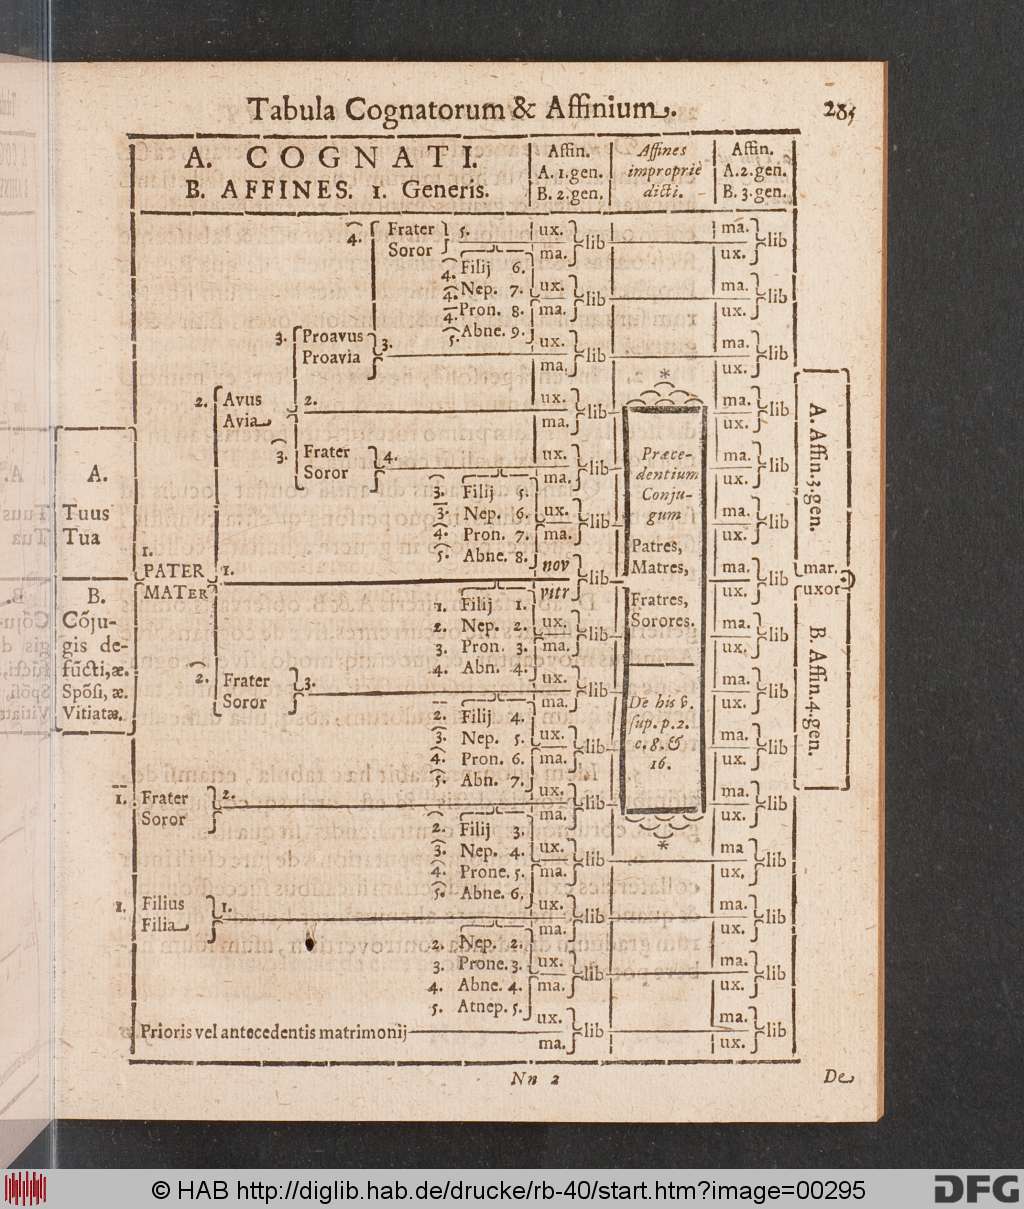 Tabula Cognatorum & Affinium. 285
A. COGNATI.
B. AFFINES. 1. Generis.
Affin.
A. 1. gen.
B. 2. gen.
Affines
impropriè
dicti.
Affin.
A. 2. gen.
B. 3. gen.
4. Frater 5. ux. lib ma. lib
Soror ma. ux.
4. Filij 6.
4. Nep. 7. ux. ma. lib
4. Pron. 8. ma. ux.
5. Abne. 9.
3. Proavus 3. ux. lib ma. lib
Proavia ma. ux.
2. Avus 2. ux. lib ma. lib
Avia ma. ux.
3. Frater 4. ux. lib ma. lib
Soror ma. ux.
3. Filij 5.
3. Nep. 6. ux. lib ma. lib
4. Pron. 7. ma. ux.
5. Abne. 8.
A.
Tuus
Tua
1.
PATER 1. nov lib ma. lib
MATER vitr ux.
B.
Cõju-
gis de-
fũcti, æ.
Spõsi, æ.
Vitiatæ.
1. Filij 1.
2. Nep. 2. ux. lib ma. lib
3. Pron. 3. ma. ux.
4. Abn. 4.
2. Frater 3. ux. lib ma. lib
Soror ma. ux.
2. Filij 4.
3. Nep. 5. ux. lib ma. lib
4. Pron. 6. ma. ux.
5. Abn. 7.
1. Frater 2. ux. lib ma. lib
Soror ma. ux.
2. Filij 3.
3. Nep. 4. ux. lib ma lib
4. Prone. 5. ma. ux,
5. Abne. 6.
1. Filius 1. ux. lib ma. lib
Filia ma. ux.
2. Nep. 2.
3. Prone. 3. ux. lib ma. lib
4. Abne. 4. ma. ux.
5. Atnep. 5.
Prioris vel antecedentis matrimonij ux. lib ma. lib
ma. ux.
*
Præce-
dentium
Conju-
gum
Patres,
Matres,
Fratres,
Sorores.
De his v.
sup. p. 2.
c. 8. &
16.
*
A. Affin. 3. gen.
mar.
uxor
B. Affin. 4. gen.
Nn 2 De
© HAB http://diglib.hab.de/drucke/rb-40/start.htm?image=00295
DFG